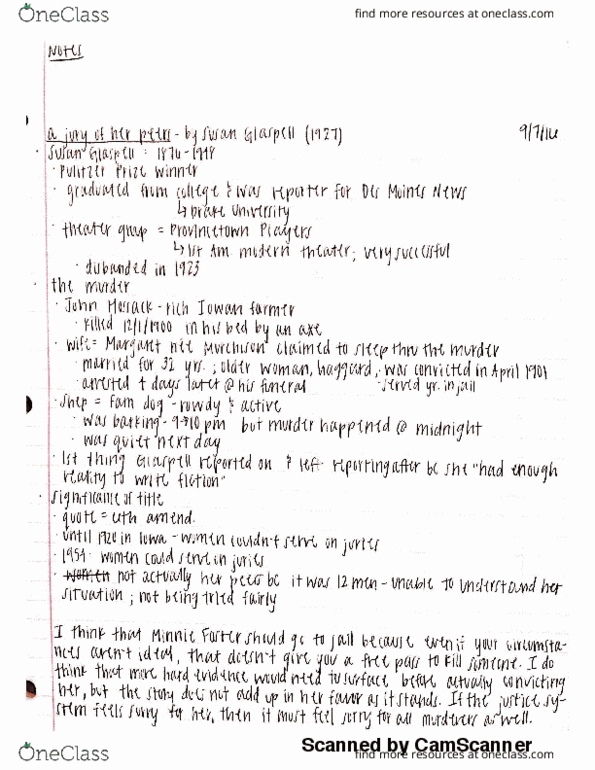 OneClass
find more resources at oneclass.com
NOTES
a jury of her peers - by Susan Glaspell (1927)
9/7/16
· Susan Glaspell : 1876-1948
· Pulitzer Prize winner
· graduated from college & was reporter for Des Moines News
↳ Drake University
· theater group = Provincetown Players
↳ 1st Am. modern theater; very successful
· disbanded in 1923
· the murder
· John Hossack - rich Iowan farmer
· killed 12/1/1900 in his bed by an axe
· wife = Margaret neé Murchison claimed to sleep thru the murder
· married for 32 yrs. ; older woman, haggard, · was convicted in April 1901
· arrested 4 days later @ his funeral · served yr. in jail
· Shep = fam dog - rowdy & active
· was barking - 9→10 pm but murder happened @ midnight
· was quiet next day
· 1st thing Glaspell reported on & left reporting after bc she "had enough
reality to write fiction"
· significance of title
· quote = 6th amend.
· until 1920 in Iowa - women couldn't serve on juries
· 1954: women could serve on juries
· women not actually her peers bc it was 12 men - unable to understand her
situation ; not being tried fairly
I think that Minnie Foster should go to jail because even if your circumsta-
nces aren't ideal, that doesn't give you a free pass to kill someone. I do
think that more hard evidence would need to surface before actually convicting
her, but the story does not add up in her favor as it stands. If the justice sy-
stem feels sorry for her, then it must feel sorry for all murderers as well.
Scanned by CamScanner
OneClass
find more resources at oneclass.com